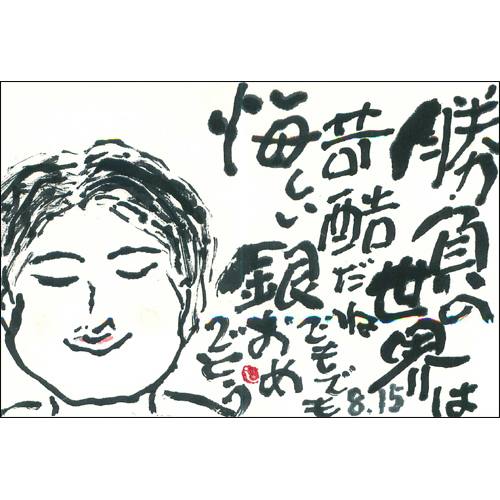 勝負の
世界は
苛酷だね
でもでも
悔しい銀
おめでとう
8.15